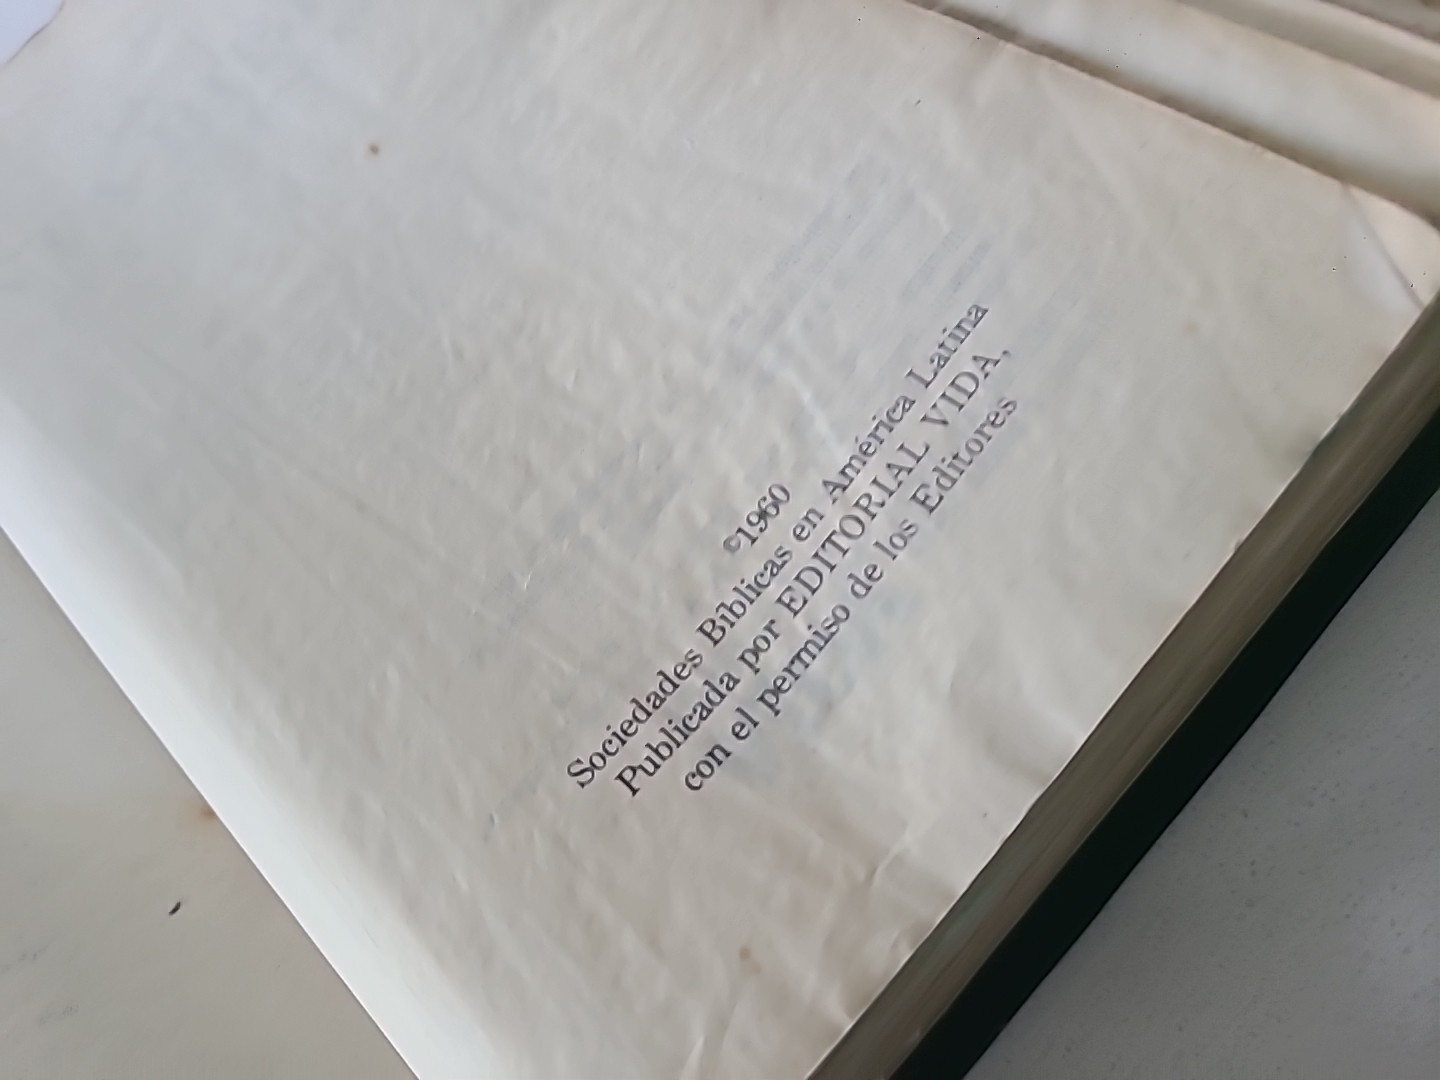 ©1960
Sociedades Bíblicas en América Latina
Publicada por EDITORIAL VIDA,
con el permiso de los Editores